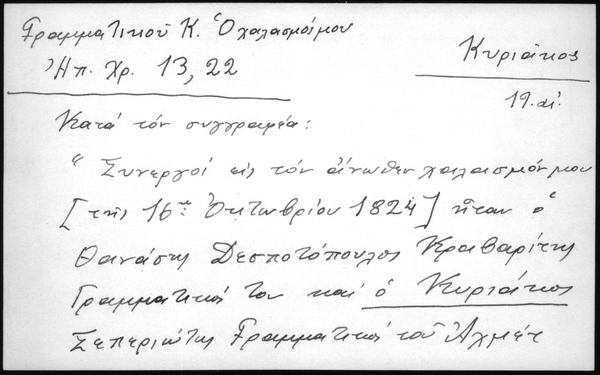 Γραμματικοῦ Κ. Ὁ χαλασμόςμου
Ἠπ. Χρ. 13, 22
Κυριάκος
19. αἰ.
Κατά τόν συγγραφέα:
“ Συνεργοί εἰς τόν ἄνωθεν χαλασμόν μου
[τῆς 16ης Ὀκτωβρίου 1824] ἦταν ὁ
Θανάσης Δεσποτόπουλος Κραβαρίτης
Γραμματικός του καί ὁ Κυριάκος
Γραμματικός τοῦ Ἀχμέτ